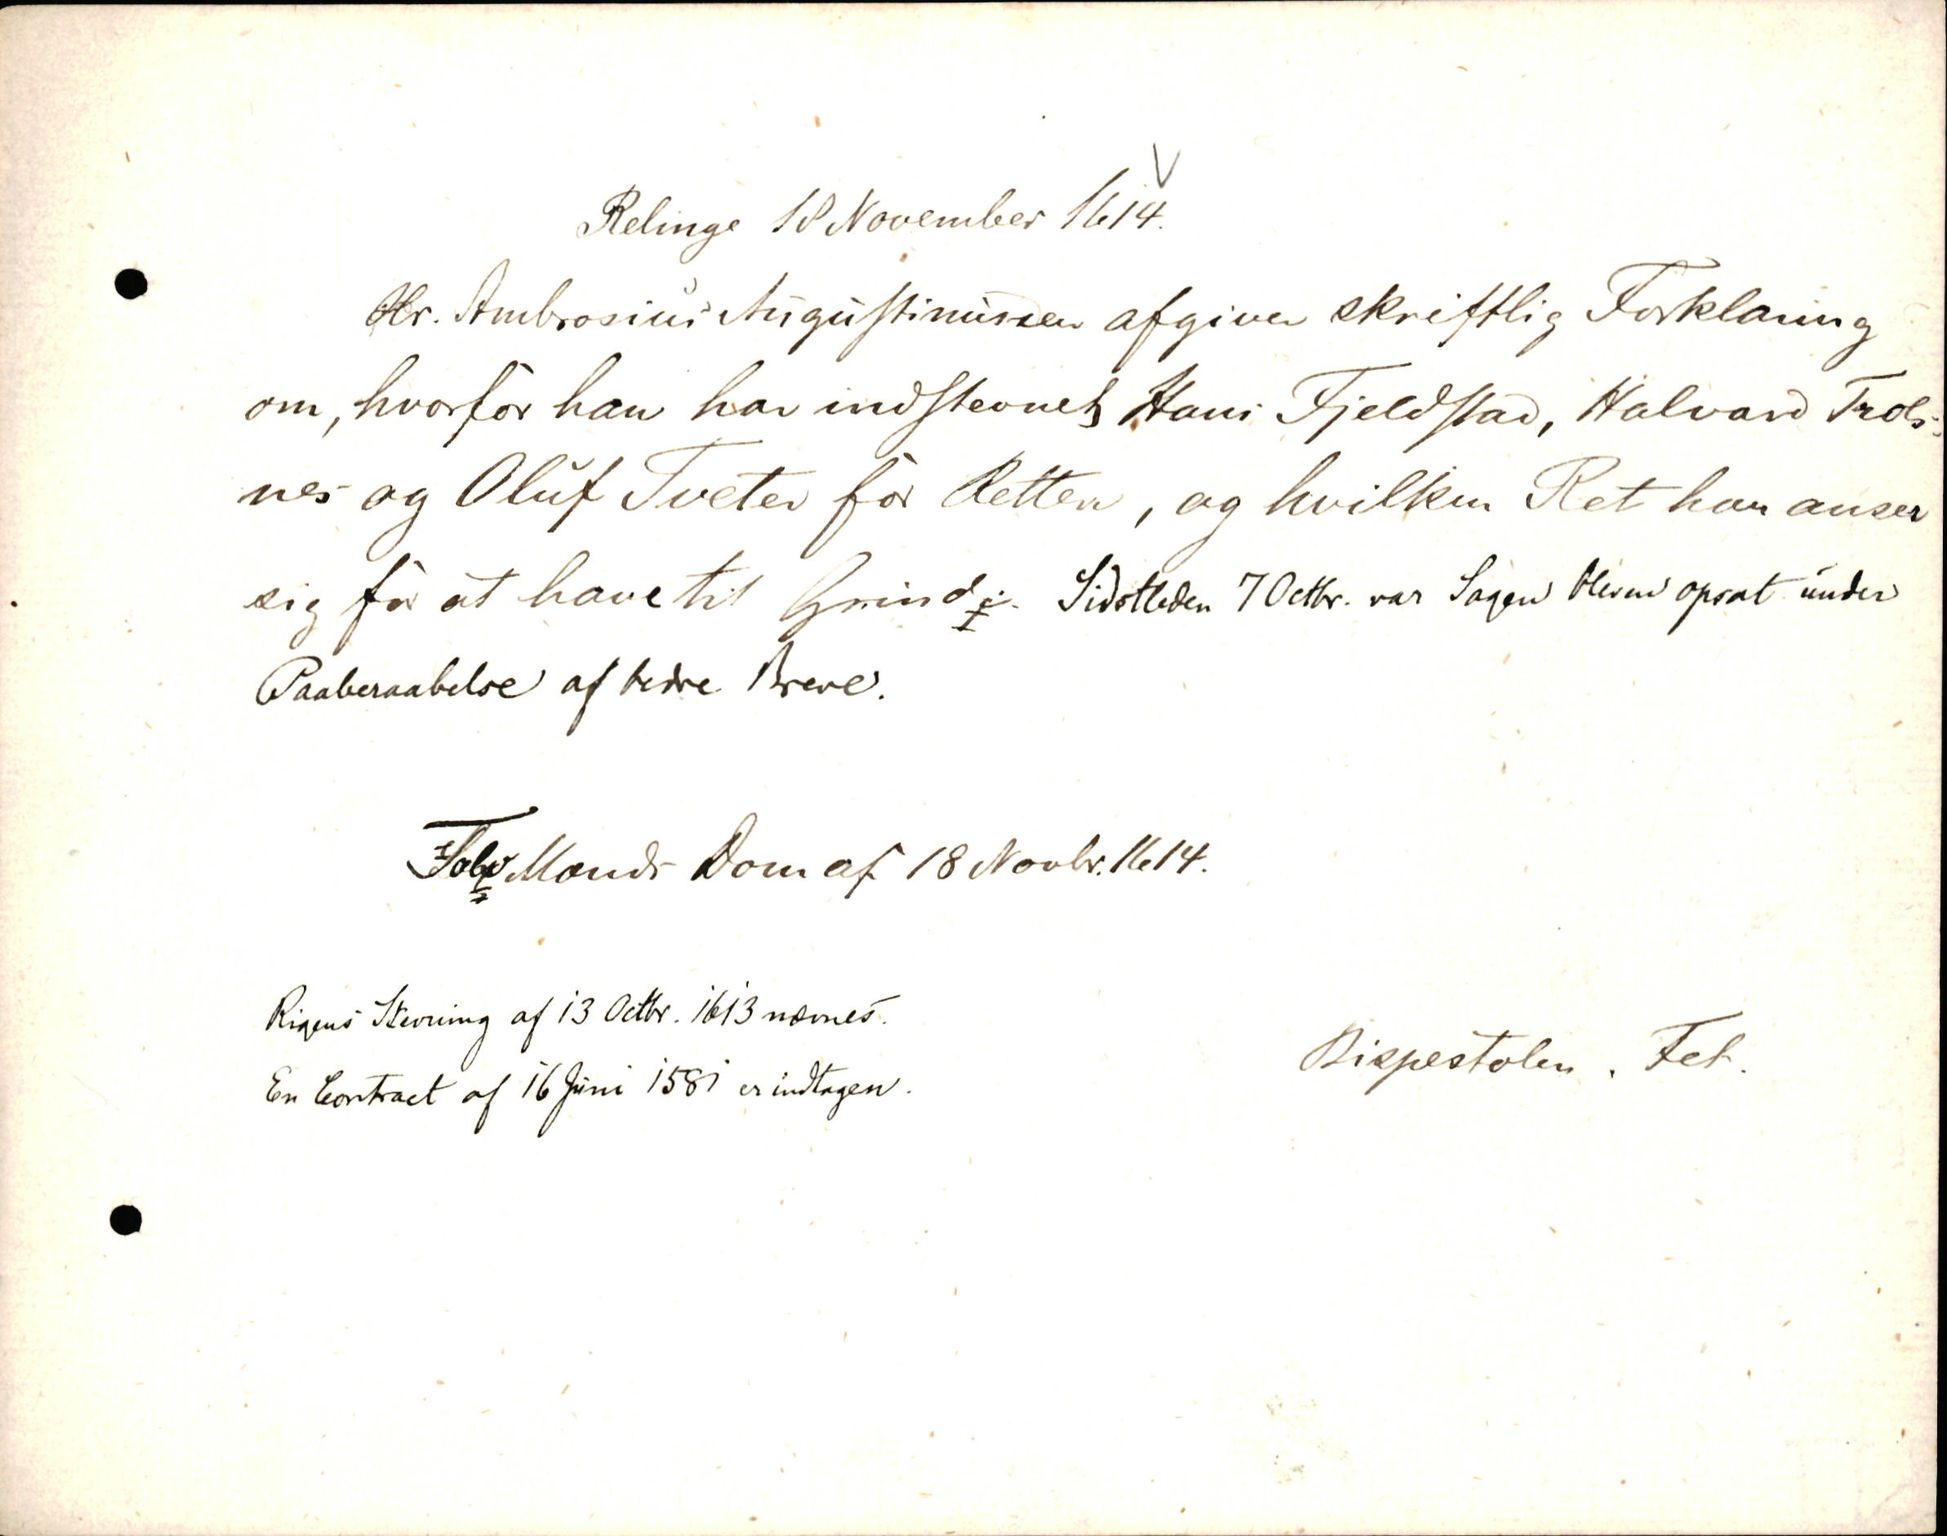 Relinge 18 November 1614.
Hr. Ambrosius Augustinussen afgiver skriftlig Forklaring
om, hvorfor han har indstevnet Hans Fjeldstad, Halvard Trols-
nes og Oluf Tveter for Retten, og hvilken Ret han anser
sig for at have til Grinde. Sidstleden 7 Octbr. var Sagen bleven opsat under
Paaberaabelse af bedre Breve.
Tolv Mænds Dom af 18 Novbr. 1614.
Rigens Stevning af 13 Octbr. 1613 nævnes.
En Contract af 16 Juni 1581 er indtagen.
Bispestolen. Fet.